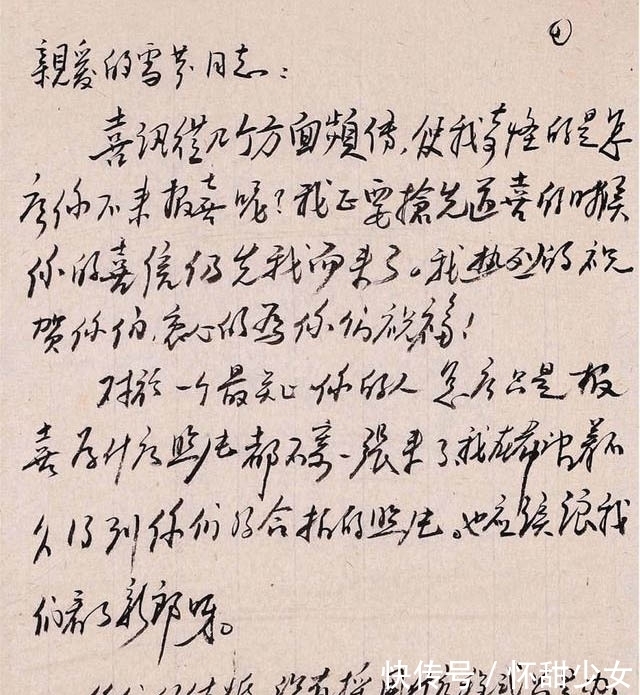 ④
親爱的雪芬同志：
喜訊從几个方面頻傳，使我奇怪的是怎
么你不来报喜呢？我正要搶先道喜的时候
你的喜信仍先我而来了。我热烈的祝
贺你们，衷心的為你们祝福！
对於一个最关心你的人怎么只是报
喜為什么照片都不寄一張来了，我在希望着不
久得到你们的合拍的照片。也应該讓我
们看了新郎呀。
你们结婚
快传号／怀甜少女